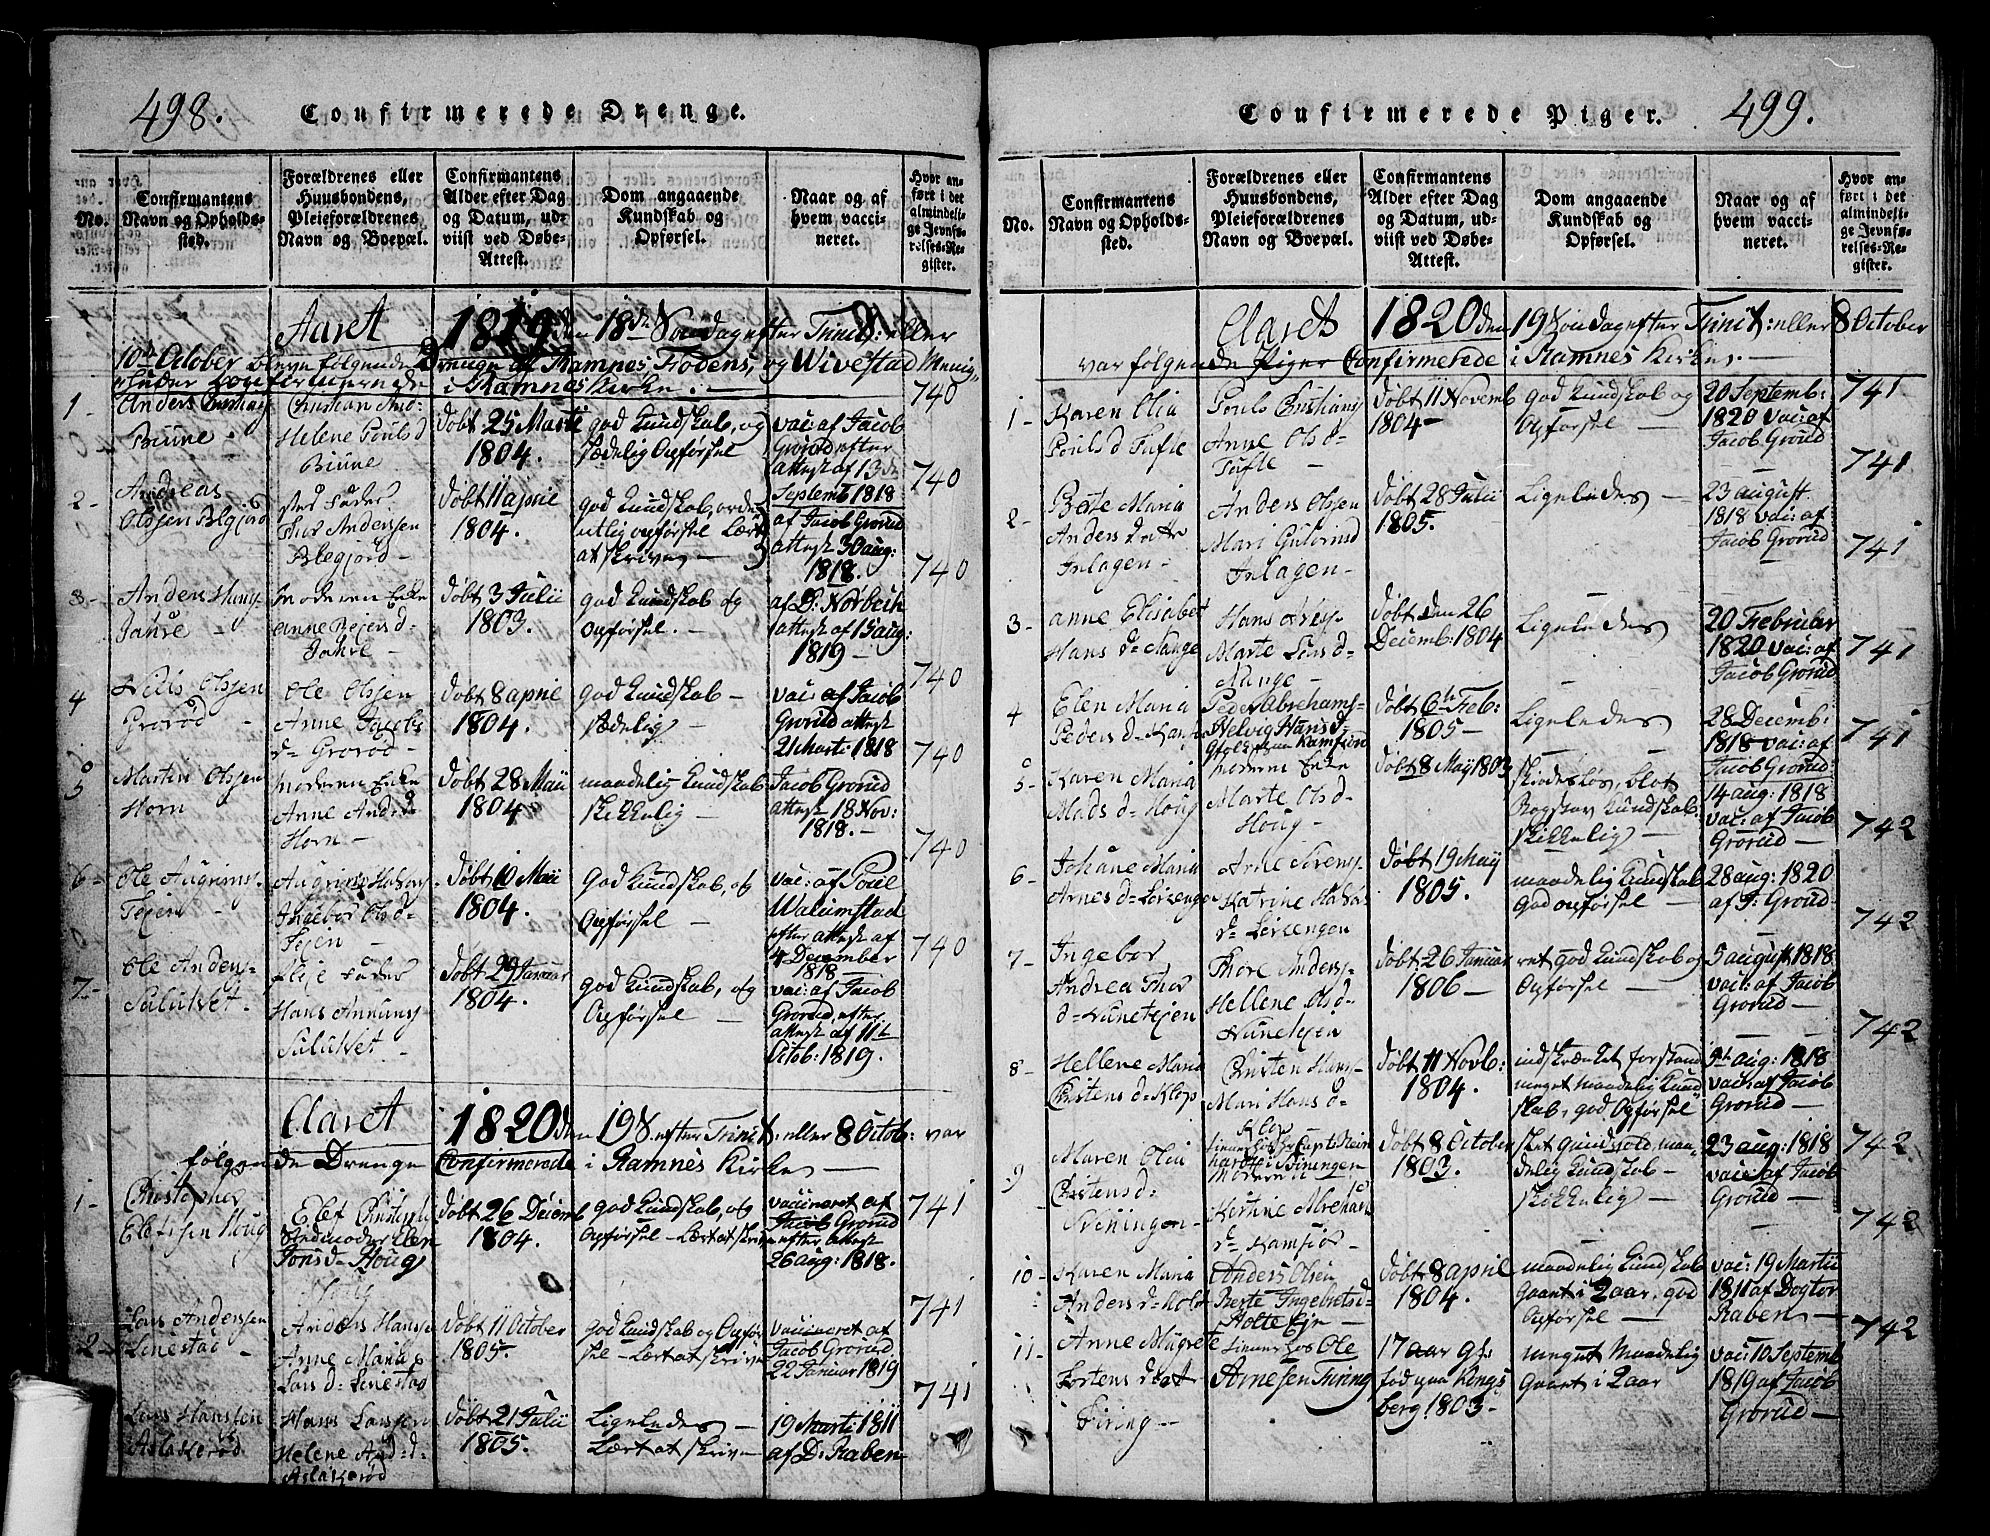 498.
Confirmerede Drenge.
No.
Confirmantens
Navn og Opholds-
sted.
Forældrenes eller
Huusbondens,
Pleieforældrenes
Navn og Boepæl.
Confirmantens
Alder efter Dag
og Datum, ud-
viist ved Døbe-
Attest.
Dom angaaende
Kundskab og
Opførsel.
Naar og af
hvem vacci-
neret.
Hvor an-
ført i det
almindeli-
ge Jevnfø-
relses-Re-
gister.
Aaret 1819 den 18de Søndag efter Trinit: eller
10de October bleve følgende Drenge af Ramnes, Fodens, og Wivestad Menig-
i Ramnes Kirke. —
1 -
Anders
Christian And:
Helene Pouls d
Døbt 25 Martii
1804.
god Kundskab, og
sædelig Opførsel
vac: af Jacob
Grorud efter
attest af 13de
Septemb 1818
740
2 -
Andreas
Olssen Blegjord
sted Fader
Thor Andersen
Blegjord -
Døbt 11 april
1804.
god Kundskab, orde
ntlig opførsel Lært
at skrive
af Jacob Grorud
attest 30 aug:
1818.
740
3 -
Anders Hans-
Jahre -
Moderen Enke
Anne Reiersd-
Jahre -
Døbt 3 Julii
1803.
god Kundskab og
Opførsel. -
af D: Norbech
attest af 15 aug:
1819 -
740
4
Niels Olssen
Grorød -
Ole Olssen
Anne Jacobs
d- Grorød -
Døbt 8 april
1804.
god Kundskab -
sædelig -
vac: af Jacob
Grorud attest
21 Marti: 1818
740
5
Martin Olssen
Horn
Moderen Enke
Anne Andr d
Horn -
Døbt 28 Maii
1804
maadelig Kundskab
skikkelig -
Jacob Grorud
attest 18 Nov:
1818. -
740
6 -
Ole Augrims-
Tejen -
Døbt 10 Maii
1804.
god Kundskab, og
Opførsel -
vac: af Poul
Walumstad
efter attest af
4 December
1818 -
740
7 -
Ole Anders-
Pleje Fader
Hans
Døbt 29 Januar
1804.
god Kundskab, og
Opførsel -
vac: af Jacob
Grorud, efter
attest af 11te
Octob: 1819.
740
Aaret 1820 den 19 S. efter Trinit: eller 8 Octob: var
følgende Drenge Confirmerede i Ramnes Kirke —
1 -
Christopher
Elefsen Houg
Elef Christoph
Stedmoder Elen
Jons d- Houg
Døbt 26 Decemb
1804.
god Kundskab, og
Opførsel - Lært at skrive
vaccineret af
Jacob Grorud
efter attest
26 aug: 1818.
741
2 -
Lars Andersen
Linestad -
Anders Hansse
Anne Maria
Lars d: Linestad
Døbt 11 October
1805.
god Kundskab og Opfør
sel - Lært at skrive
vaccineret af
Jacob Grorud.
22 Januar 1819
741
Lars Hanssen
Aslakerød
Hans Larssen
Helene And: d-
Aslakerød
Døbt 21 Julii
1805.
Ligeledes -
Lært at skrive
19 Marti 1811
af D: Raben
741
Confirmerede Piger.
499.
No.
Confirmantens
Navn og Opholds-
sted.
Forældrenes eller
Huusbondens,
Pleieforældrenes
Navn og Boepæl.
Confirmantens
Alder efter Dag
og Datum, ud-
viist ved Døbe-
Attest.
Dom angaaende
Kundskab og
Opførsel.
Naar og af
hvem vacci-
neret.
Hvor an-
ført i det
almindeli-
ge Jevnfø-
relses-Re-
gister.
Aaret 1820 den 19 Søndag efter Trinit: eller 8 October
var følgende Piger Confirmerede i Ramnes Kirke. —
1 -
Karen Olia
Pouls d Tufte
Pouls Christians
Anne Ols d-
Tufte -
Døbt 11 Novemb
1804 -
god Kundskab og
Opførsel -
20 Septemb:
1820 vac: af
Jacob Grorud
741
2 -
Berte Maria
Anders Datter
Inlagen -
Anders Olssen
Mari Gulbrand
Inlagen -
Døbt 28 Julii
1805.
Ligeledes -
23 august
1818 vac: af
Jacob Grorud
741
3 -
Anne Elisabet
Hans d- Nange
Hans
Marte Lars d-
Nange -
Døbt den 26
Decemb: 1804
Ligeledes
20 Februar
1820 vac: af
Jacob Grorud
741
4
Elen Maria
Peders d-
Peder Abrahams-
Helvig Hans d-
Døbt 6te Feb:
1805 -
Ligeledes
28 Decemb:
1818 vac: af
Jacob Grorud
741
5 -
Karen Maria
Mads d- Houg
Moderen Enke
Marte Ols d-
Houg -
Døbt 8 Maij 1803
skiødesløs, blot
Bogstav Kundskab.
skikkelig -
14 aug: 1818
vac: af Jacob
Grorud -
741
6 -
Johane Maria
Arnes d-
Arne Sørens-
Katrine
Døbt 19 Maij
1805.
maadelig Kundskab
god opførsel -
28 aug: 1820
af J: Grorud -
742
7 -
Ingebor
Andrea Thor
d-
Thore Anders-
Hellene Ols d-
Døbt 26 Januar
1806 -
ret god Kundskab og
Opførsel -
5 august 1818
vac: af Jacob
Grorud -
742
8 -
Hellene Maria
Christens d- Klop
Christen Hans-
Mari Hans d-
Klop
Døbt 11 Novb:
1804.
indskrænket forstand
meget maadelig Kund
skab, god Opførsel
9de aug: 1818
vac: af Jacob
Grorud -
742
9
Maren Olia
Christens d-
Døbt 8 October
1803.
maa-
delig Kundskab -
skikkelig -
23 aug: 1818
vac: af Jacob
Grorud -
742
10 -
Karen Maria
Anders d- Holt
Anders Olsen
Berte Ingebretsd-
Holte Eje -
Døbt 8 april
1804.
maadelig Kundskab
Gaaet i 2 aar, god
Opførsel -
vac: 19 Martii
1811 af Doctor
Raben -
742
11 -
Anne Magrete
Tortens datt
Firing -
Ole
Arnesen Firing
17 aar gl:
fød paa Kongs
berg 1803 -
meget Maadelig
Gaaet i 2 aar
vac: 10 Septemb
1819 af Jacob
Grorud -
742